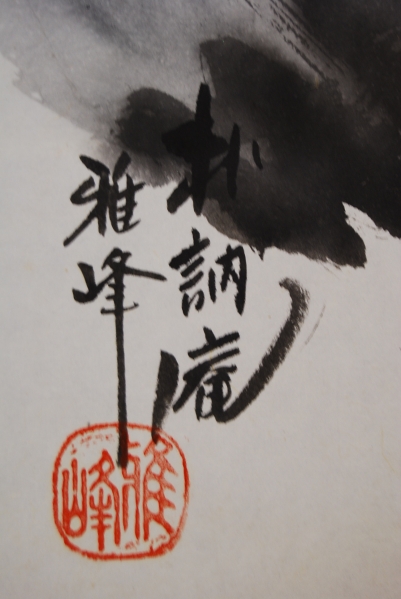 朴訥庵
雅峰
雅峰